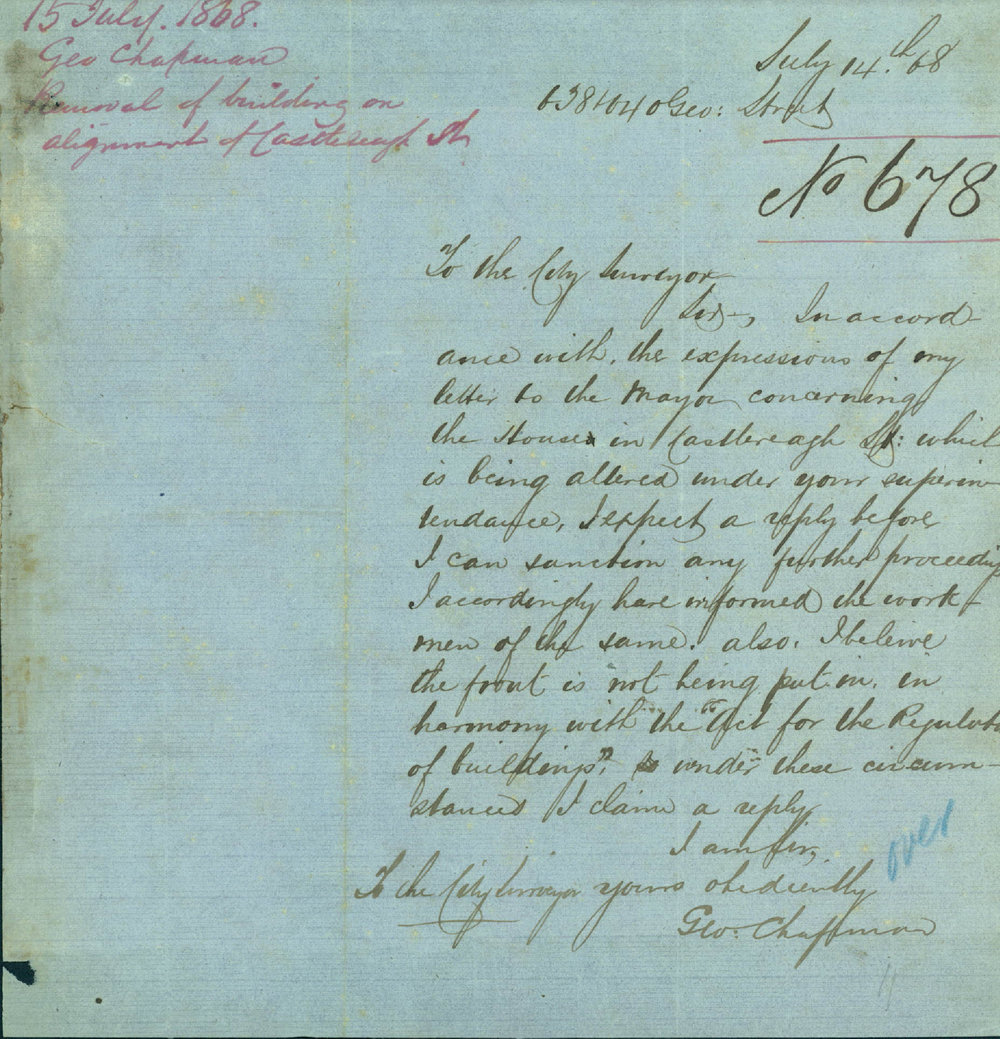 15 July. 1868.
Geo Chapman
Removal of building on
alignment of Castlereagh St
July 14.th 68
638 to 40 Geo: Street
No 678
To the City Surveyor
Sir—, In accord-
ance with, the expressions of my
letter to the Mayor concerning
the House in Castlereagh St: which
is being altered under your superin-
tendance, I expect a reply before
I can sanction any further proceeding
I accordingly have informed the work-
men of the same. also. I beleive
the front is not being put in. in
harmony with the "Act for the Regulat
of buildings". under these circum-
stances I claim a reply
I am Sir,
To the City Surveyor yours obediently
Geo: Chapman
over